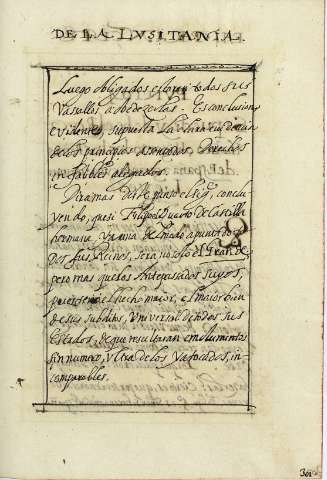 DE LA LVSITANIA.
Luego obligados estoyn todos sus
Vasallos a obedecerlas. Es conclusion
evidente, supuesta la
de los principios asentados, Derechos
infalibles alegados.
Diramas este punto el Rey, conclu
yendo, que si Filipe Quarto de Castilla
hermana, Ya una de
dos sus Reinos, sera no solo el Grande
pero mas que los Antepassados suyos,
por ser en el hecho maior, el maior bien
de sus subditos, Universal de todos sus
Estados, de que resultaran emolumentos
sin numero, ultra de los ya tocados, in
comparables.